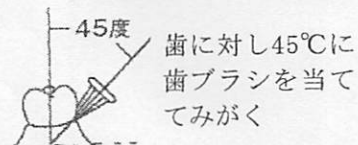 45度
歯に対し45℃に
歯ブラシを当て
てみがく